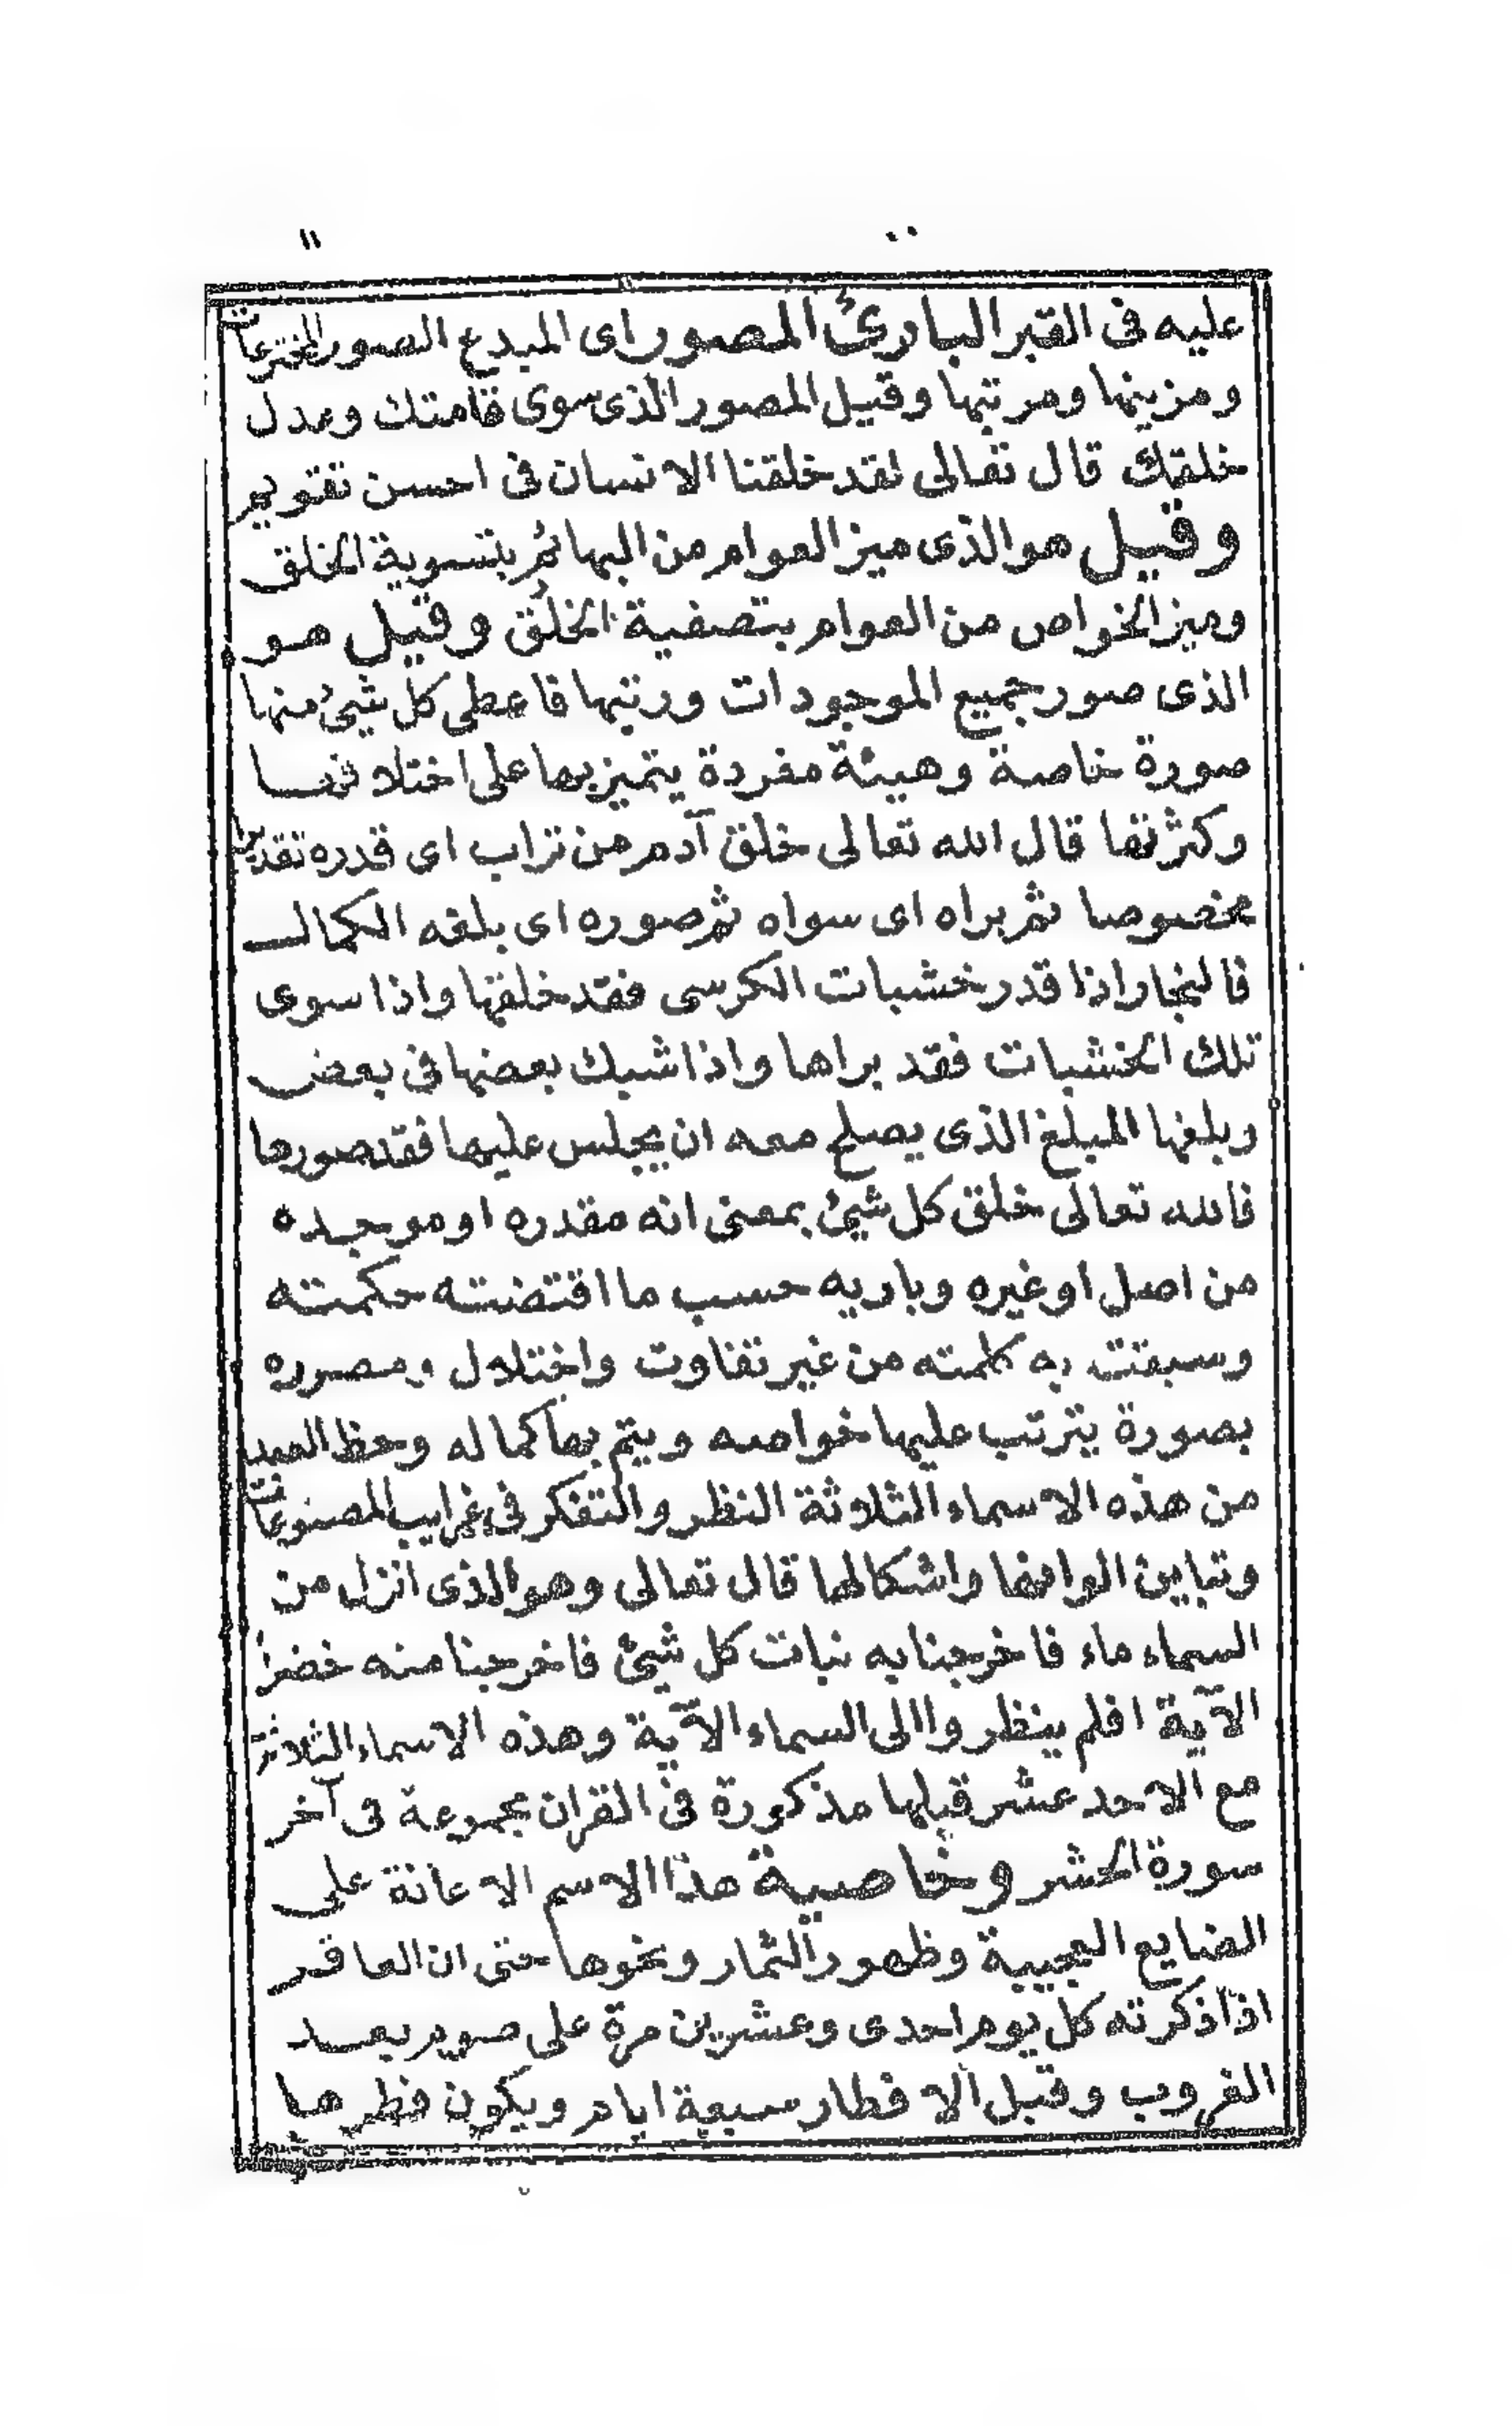 ١١
عليه فى القبر البارئ المصور اى المبدع الصور المخترعات
ومزينها ومرتبها وقيل المصور الذى سوى قامتك وعدل
خلقك قال تعالى لقد خلقنا الانسان فى احسن تقويم
وقيل هو الذى ميز العوام من البهائم بتسوية الخلق
وميز الخواص من العوام بتصفية الخلُق وقيل هو
الذى صور جميع الموجودات ورتبها فاعطى كل شيئ منها
صورة خاصة وهيئة مفردة يتميز بها على اختلافها
وكثرتها قال الله تعالى خلق آدم من تراب اى قدره تقديرا
مخصوصا ثم براه اى سواه ثم صوره اى بلغه الكمال
فالنجار اذا قدر خشبات الكرسى فقد خلقها واذا سوى
تلك الخشبات فقد براها واذا شبك بعضها فى بعض
وبلغها المبلغ الذى يصلح معه ان يجلس عليها فقد صورها
فالله تعالى خلق كل شيئ بمعنى انه مقدره او موجده
من اصل او غيره وباريه حسب ما اقتضته حكمته
وسبقت به كلمته من غير تفاوت واختلال ومصوره
بصورة يترتب عليها خواصه ويتم بها كماله وحظ العبد
من هذه الاسماء الثلاثة النظر والتفكر فى غرايب المصنوعات
وتباين الوانها واشكالها قال تعالى وهو الذى انزل من
السماء ماء فاخرجنا به نبات كل شيئ فاخرجنا منه خضرا
الآية افلم ينظروا الى السماء الآية وهذه الاسماء الثلاثة
مع الاحد عشر قبلها مذكورة فى القران مجموعة فى آخر
سورة الحشر وخاصية هذا الاسم الاعانة على
الضايع العجيبة وظهور الثمار ونحوها حتى ان العاقر
اذا ذكرته كل يوم احدى وعشرين مرة على صوم بعد
الغروب وقبل الافطار سبعة ايام ويكون فطرها